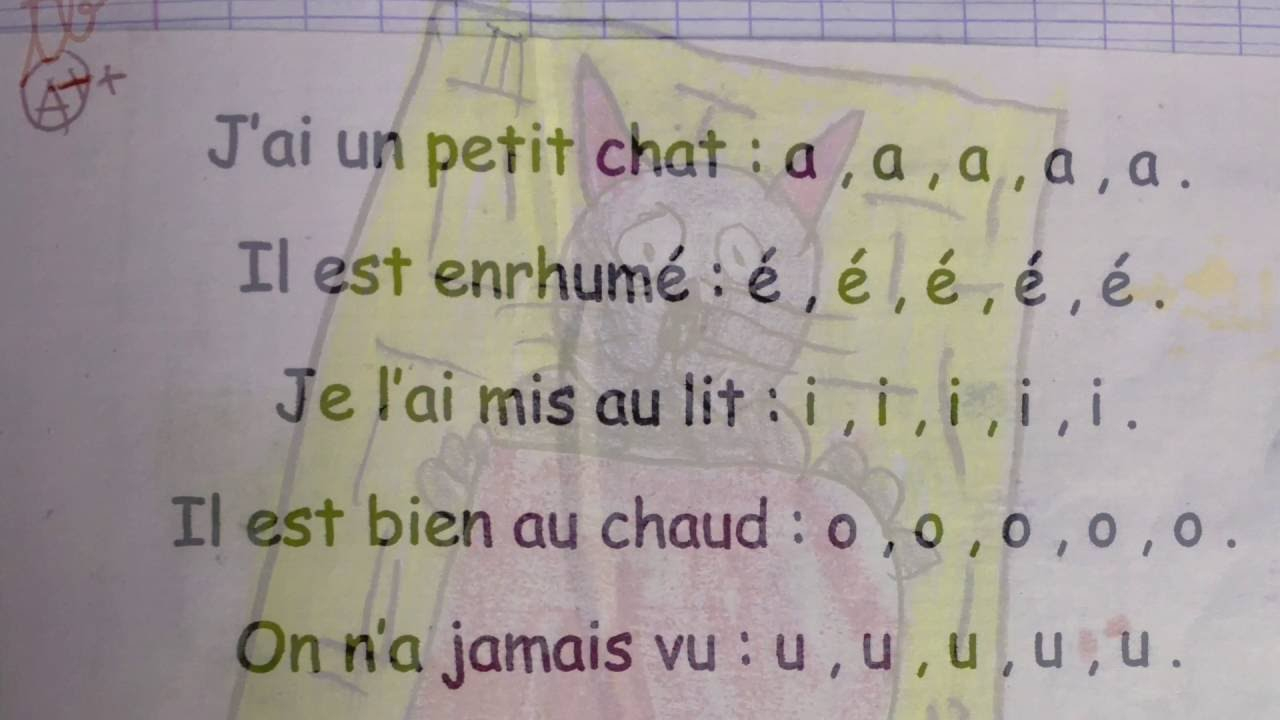 A++
J'ai un petit chat : a , a , a , a , a .
Il est enrhumé : é , é , é , é , é .
Je l'ai mis au lit : i , i , i , i , i .
Il est bien au chaud : o , o , o , o , o .
On n'a jamais vu : u , u , u , u , u .